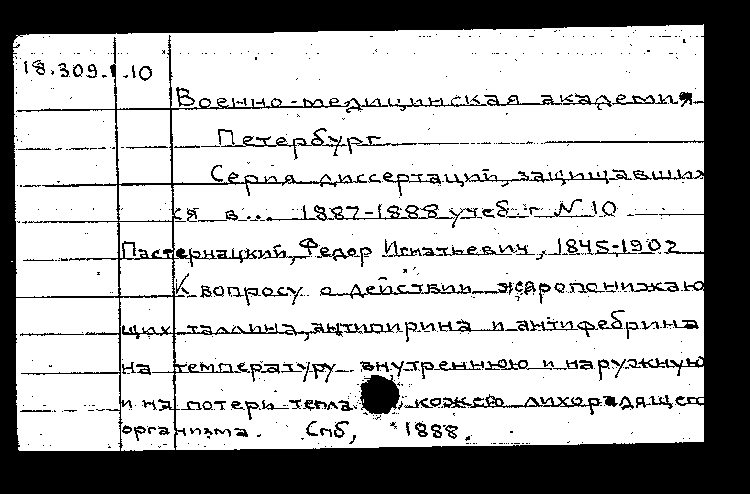 18.309.1.10
Военно-медицинская академия
Петербург
Серия диссертаций, защищавших
ся в... 1887-1888 учеб. г N 10
Пастернацкий, Федор Игнатьевич, 1845-1902
К вопросу о действии жаропонижаю
щих таллина, антипирина и антифебрина
на температуру внутреннюю и наружную
и на потери тепла кожею лихорадящего
организма. Спб, 1888.